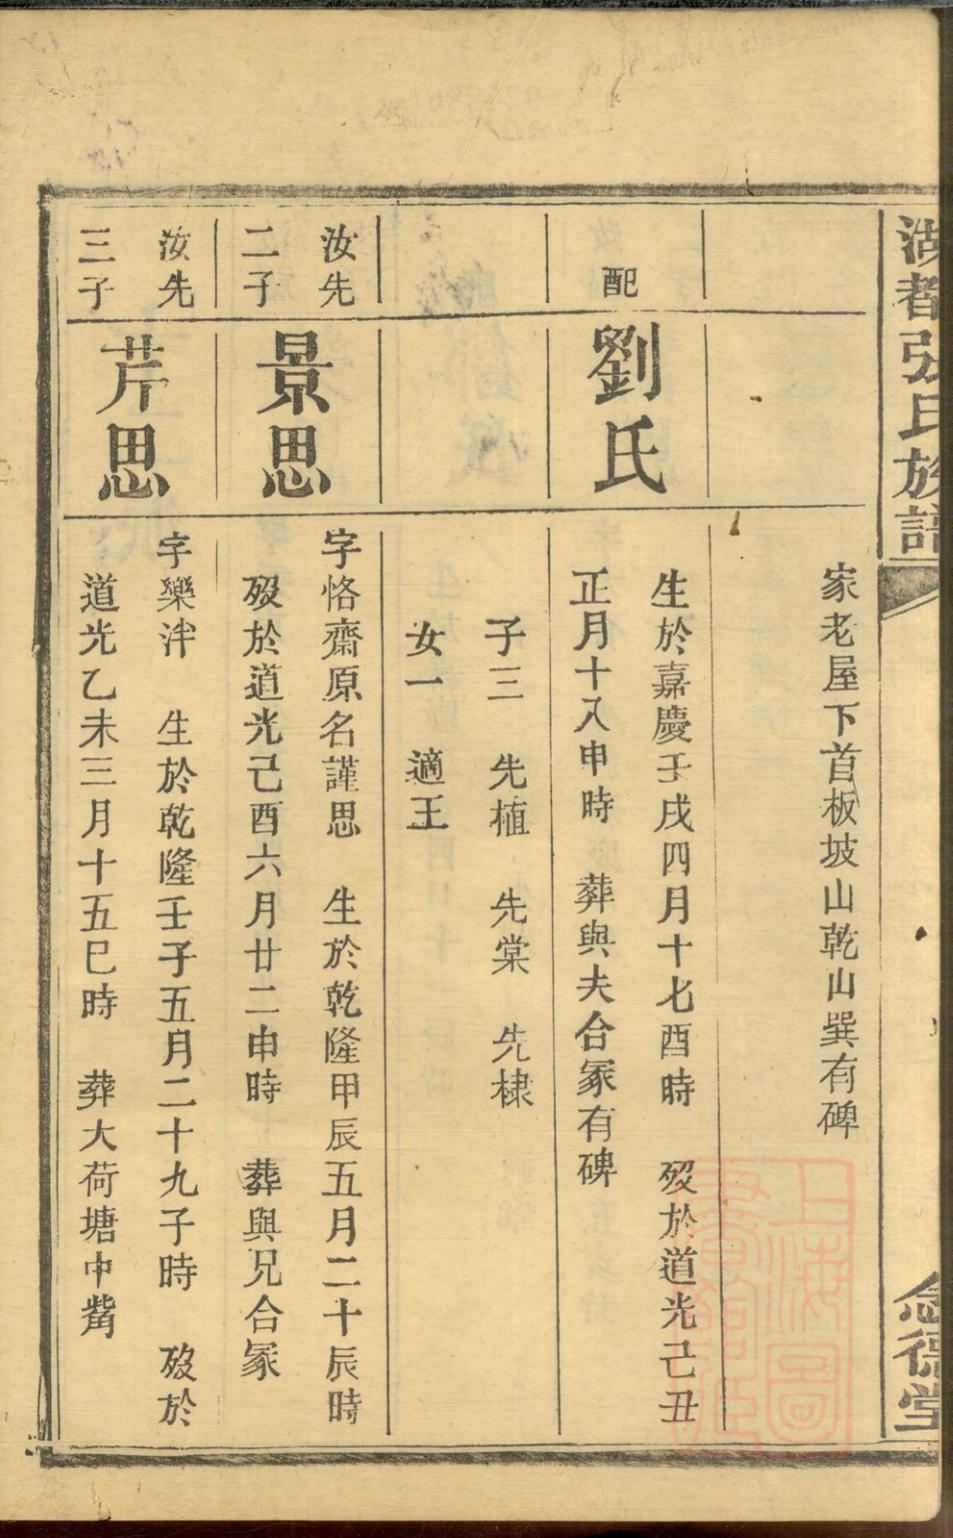 湖者張氏族譜
念德堂
家老屋下首板坡山乾山巽有碑
配
劉氏
生於嘉慶壬戌四月十七酉時 歿於道光己丑
正月十八申時 葬與夫合冢有碑
子三 先植 先棠 先棣
女一 適王
汝先
二子
景思
字恪齋原名謹思 生於乾隆甲辰五月二十辰時
歿於道光己酉六月廿二申時 葬與兄合冢
汝先
三子
芹思
字樂泮 生於乾隆壬子五月二十九子時 歿於
道光乙未三月十五巳時 葬大荷塘中觜